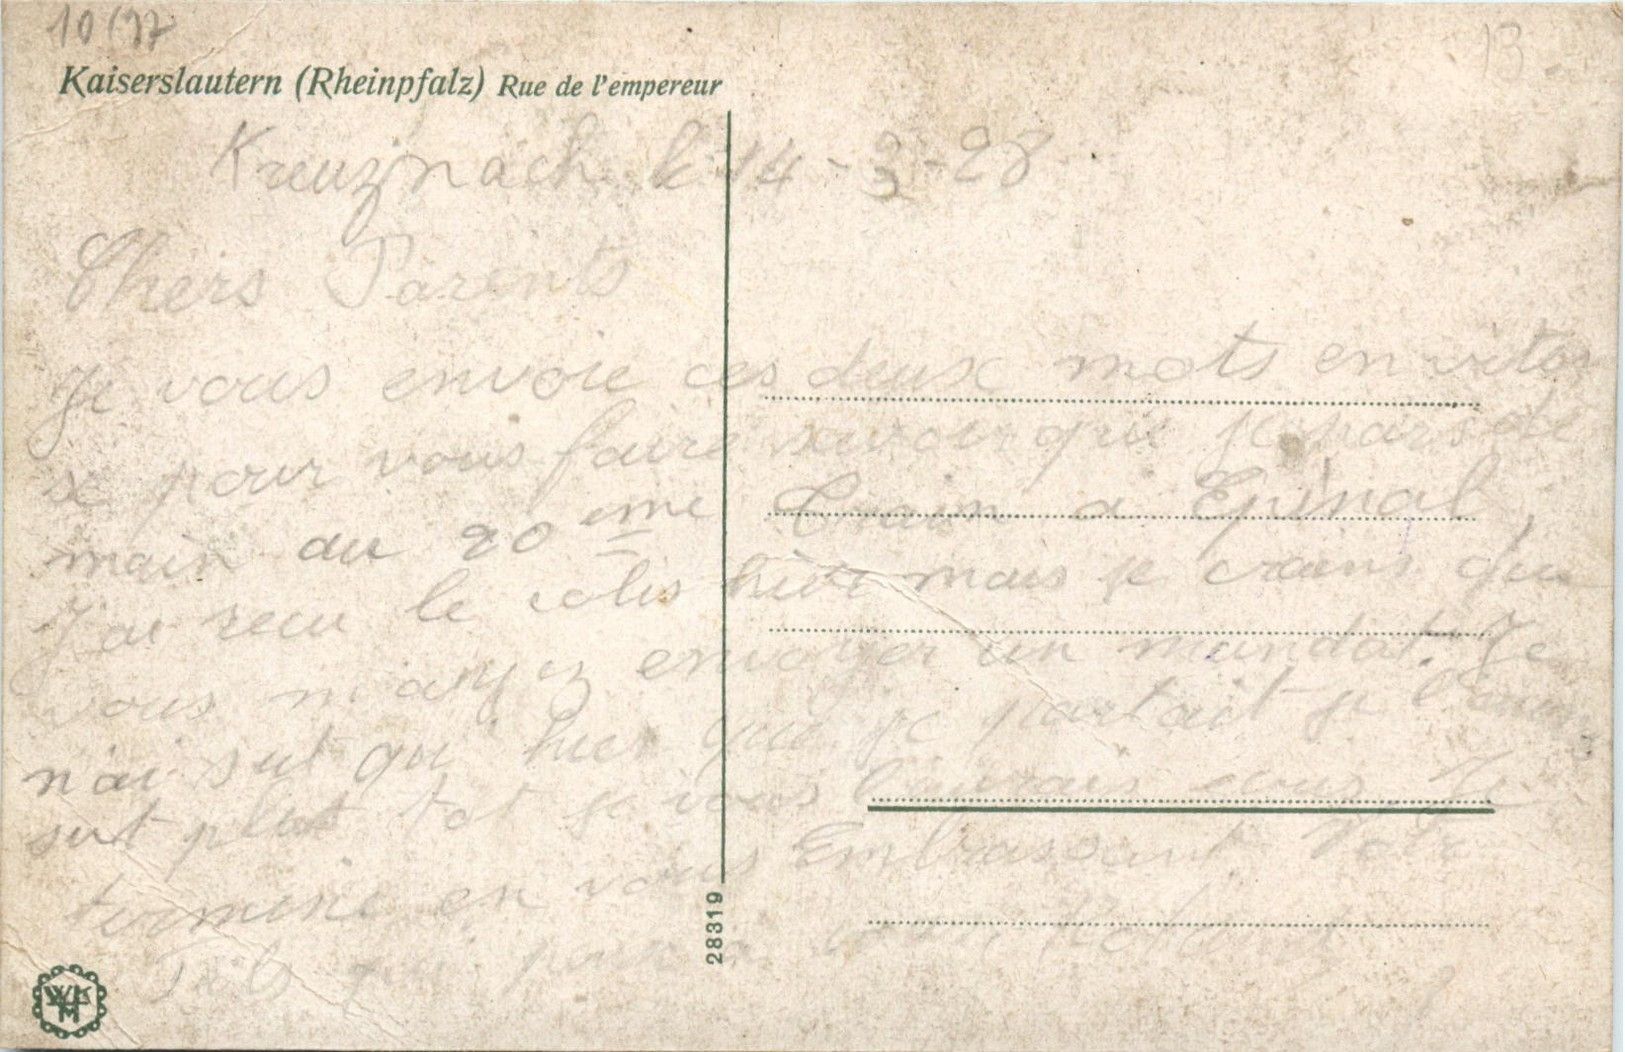 10/97
13
Kaiserslautern (Rheinpfalz) Rue de l'empereur
Kreuznach le 14-3-28
Chers Parents
Je vous envoie ces deux mots en vites
se pour vous faire savoir que je pars de
main au 20 eme Train a Epinal
J'ai recu le colis hier mais je crains que
vous m'ayez envoyer un mandat. Je
n'ai sut qu'hier que je partait je l'
sut plus tot je vous Je
termine en vous Embrassant Votre
Fils qui
28319
WKM